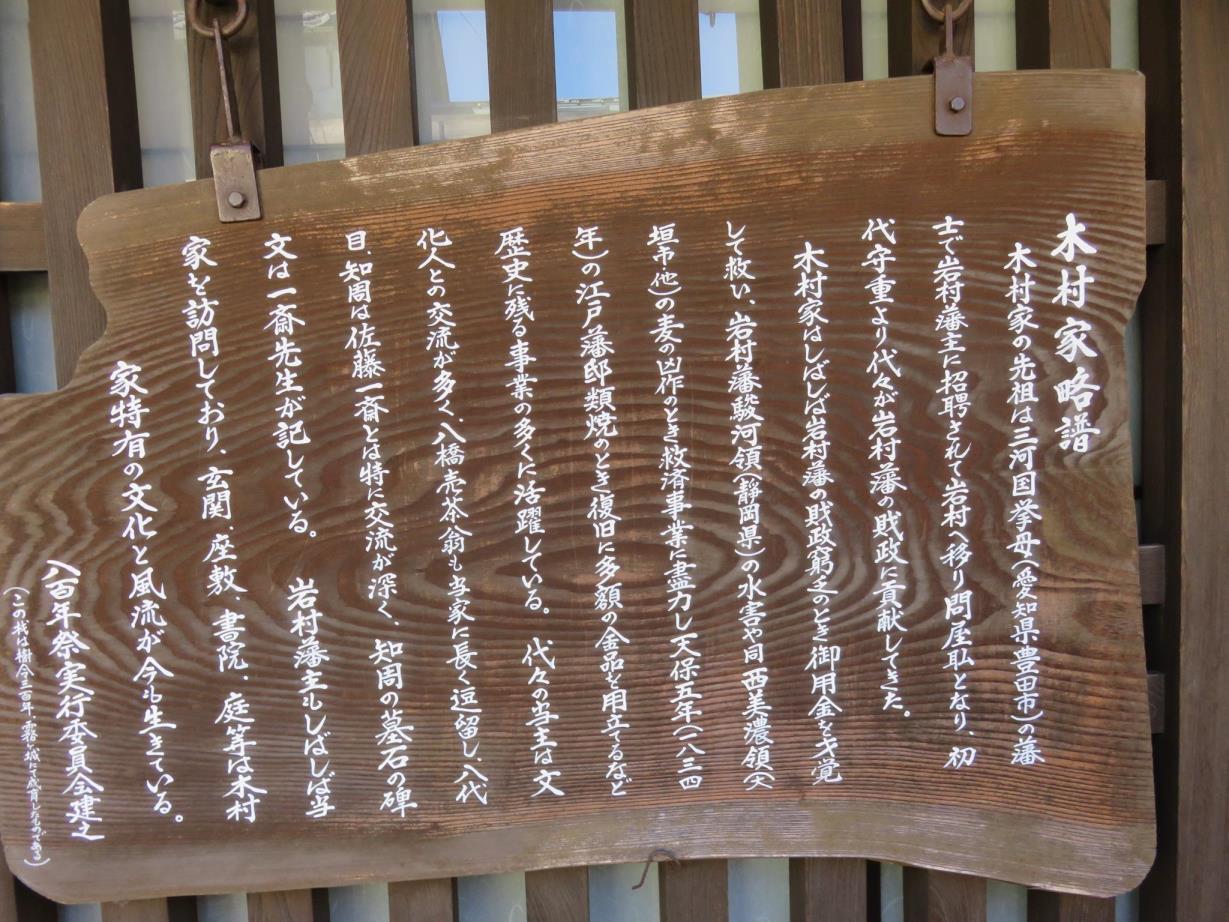 木村家略譜
木村家の先祖は三河国挙母(愛知県豊田市)の藩
士で岩村藩主に招聘されて岩村へ移り問屋耺となり、初
代守重より代々が岩村藩の財政に貢献してきた。
木村家はしばしば岩村藩の財政窮乏のとき御用金を才覚
して救い、岩村藩駿河領(静岡県)の水害や同西美濃領(大
垣市・他)の麦の凶作のとき救済事業に盡力し天保五年(一八三四
年)の江戸藩邸類焼のとき復旧に多額の金品を用立てるなど
歴史に残る事業の多くに活躍している。 代々の当主は文
化人との交流が多く、八橋売茶翁も当家に長く逗留し、八代
目、知周は佐藤一斎とは特に交流が深く、知周の墓石の碑
文は一斎先生が記している。 岩村藩主もしばしば当
家を訪問しており、玄関、座敷、書院、庭等は木村
家特有の文化と風流が今も生きている。
八百年祭実行委員会建之
(この栈は樹令三百年、霧ヶ城にて成育したものである)